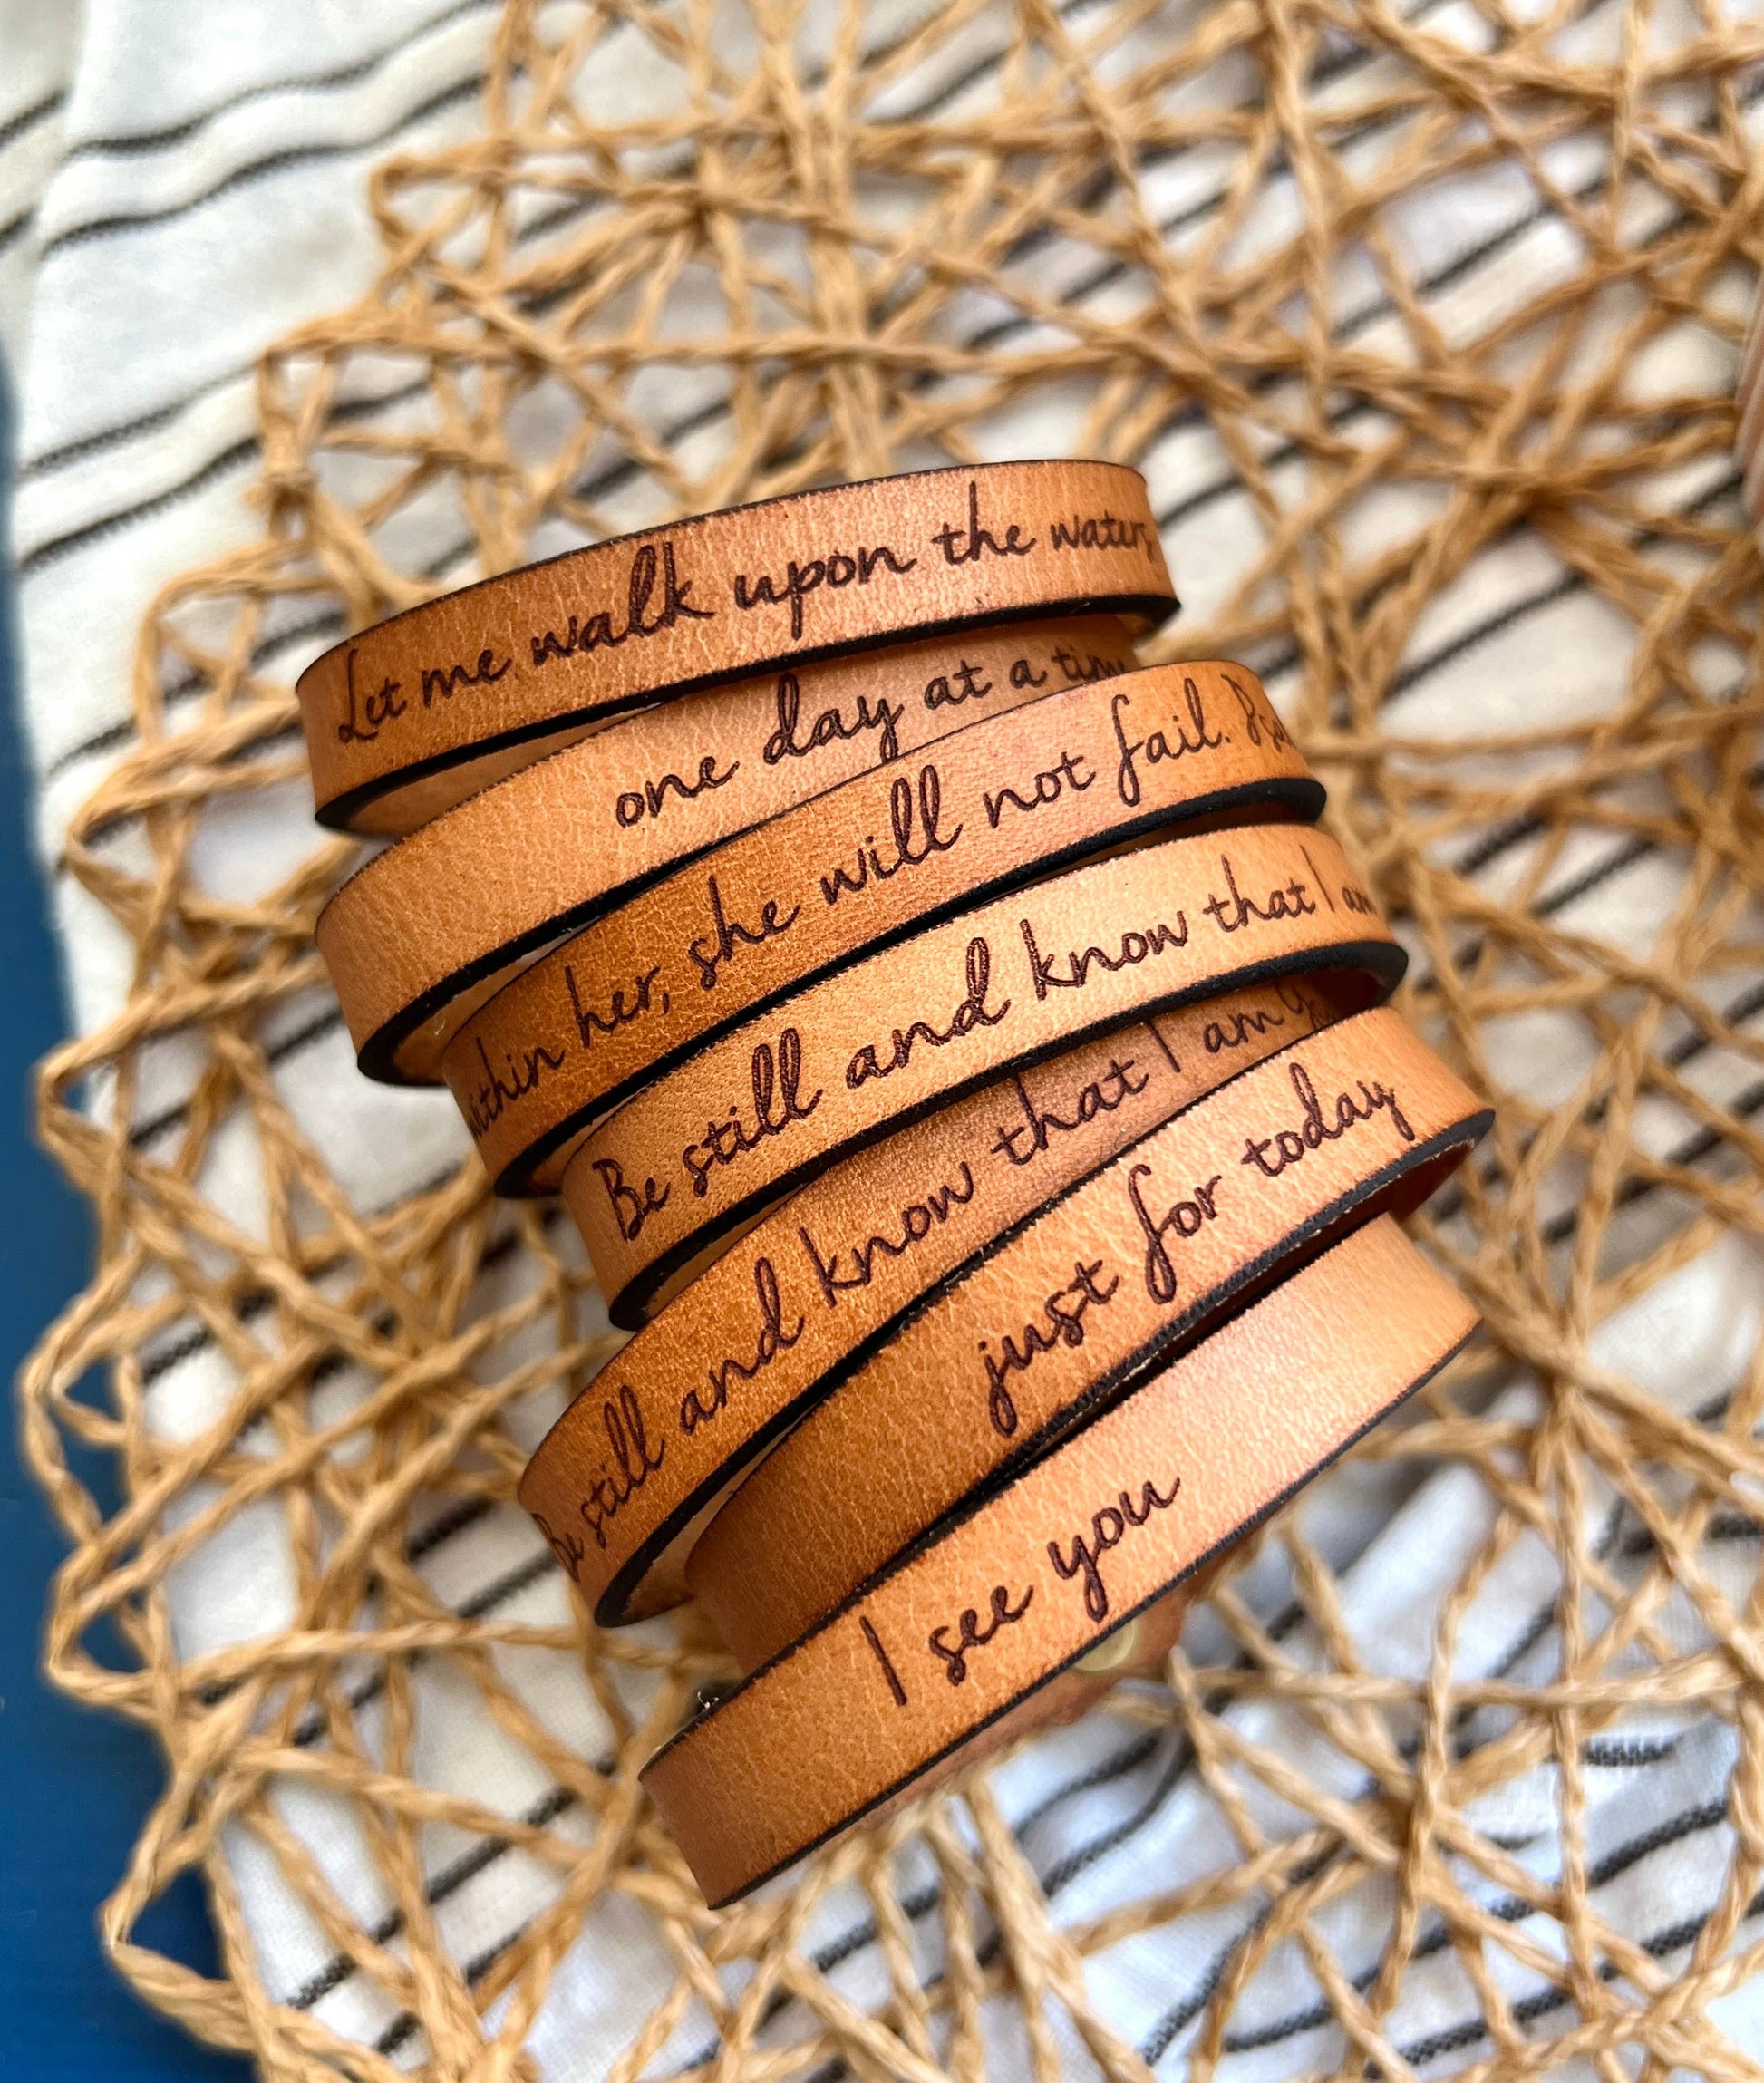 Let me walk upon the waters
one day at a time
within her, she will not fail.
Be still and know that I am
Be still and know that I am
just for today
I see you